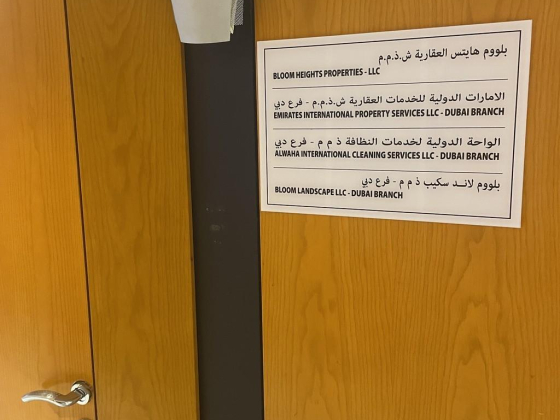 بلووم هايتس العقارية ش.ذ.م.م
BLOOM HEIGHTS PROPERTIES - LLC
الامارات الدولية للخدمات العقارية ش.ذ.م.م - فرع دبي
EMIRATES INTERNATIONAL PROPERTY SERVICES LLC - DUBAI BRANCH
الواحة الدولية لخدمات النظافة ذ م م - فرع دبي
ALWAHA INTERNATIONAL CLEANING SERVICES LLC - DUBAI BRANCH
بلووم لاند سكيب ذ م م - فرع دبي
BLOOM LANDSCAPE LLC - DUBAI BRANCH